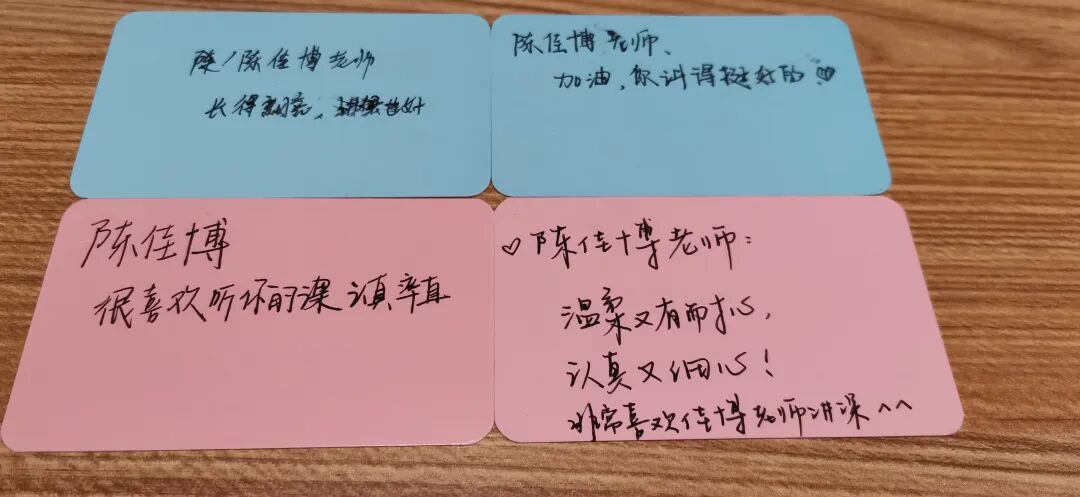 陈佳博老师
长得漂亮，讲课也好
陈佳博老师、
加油，你讲得挺好的！♡
陈佳博
很喜欢听你的课 真率直
♡陈佳博老师：
温柔又有耐心，
认真又细心！
非常喜欢佳博老师讲课^^